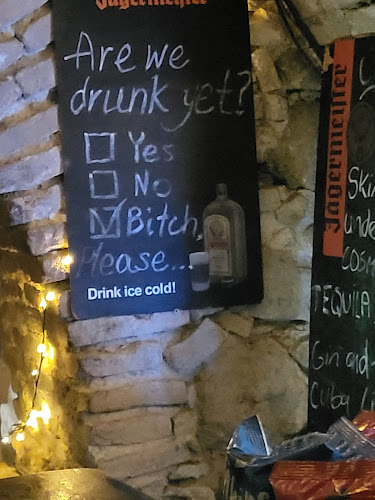 Jägermeister
Are we
drunk yet?
Yes
No
Bitch,
Please...
Drink ice cold!
Jägermeister
unde
COSM
TEQUILA
Gin and
Cuba Li